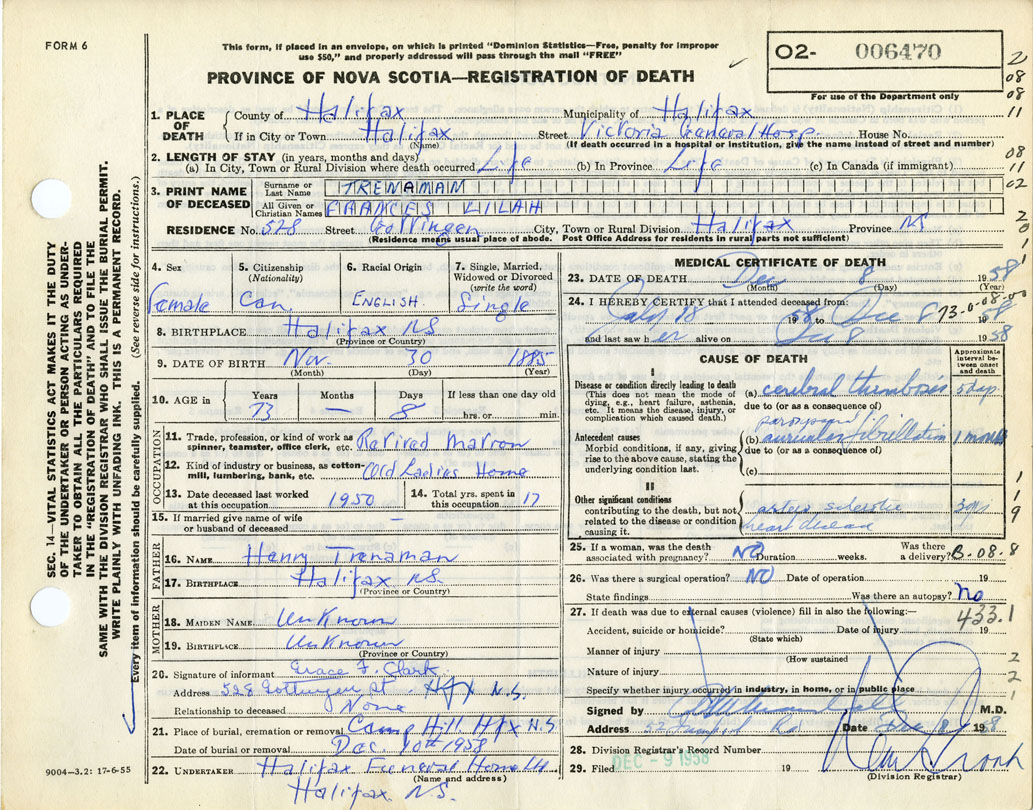 FORM 6
This form, if placed in an envelope, on which is printed "Dominion Statistics—Free, penalty for improper
use $50," and properly addressed will pass through the mail "FREE"
PROVINCE OF NOVA SCOTIA—REGISTRATION OF DEATH
02- 006470
For use of the Department only
2
08
08
11
08
11
02
2
0
1
1. PLACE OF DEATH
County of Halifax Municipality of Halifax
If in City or Town Halifax Street Victoria General Hosp. House No.
(Name) (If death occurred in a hospital or institution, give the name instead of street and number)
2. LENGTH OF STAY (in years, months and days)
(a) In City, Town or Rural Division where death occurred Life (b) In Province Life (c) In Canada (if immigrant)
3. PRINT NAME OF DECEASED
Surname or Last Name TRENAMAN
All Given or Christian Names FRANCES LILAH
RESIDENCE No. 528 Street Gottingen City, Town or Rural Division Halifax Province NS
(Residence means usual place of abode. Post Office Address for residents in rural parts not sufficient)
4. Sex
Female
5. Citizenship
(Nationality)
Can.
6. Racial Origin
ENGLISH.
7. Single, Married,
Widowed or Divorced
(write the word)
Single
8. BIRTHPLACE Halifax NS
(Province or Country)
9. DATE OF BIRTH Nov. 30 1885
(Month) (Day) (Year)
10. AGE in
Years Months Days If less than one day old
73 — 8 hrs. or min.
OCCUPATION
11. Trade, profession, or kind of work as
spinner, teamster, office clerk, etc. Retired Matron
12. Kind of industry or business, as cotton-
mill, lumbering, bank, etc. Old Ladies Home
13. Date deceased last worked
at this occupation 1950
14. Total yrs. spent in
this occupation 17
15. If married give name of wife
or husband of deceased —
FATHER
16. NAME Henry Trenaman
17. BIRTHPLACE Halifax NS.
(Province or Country)
MOTHER
18. MAIDEN NAME UnKnown
19. BIRTHPLACE UnKnown
(Province or Country)
20. Signature of informant Grace F. Clark
Address 528 Gottingen St. Hfx N.S.
Relationship to deceased None
21. Place of burial, cremation or removal Camp Hill Hfx N.S
Date of burial or removal Dec. 10th 1958
22. UNDERTAKER Halifax Funeral Home Ltd
(Name and address)
Halifax NS.
MEDICAL CERTIFICATE OF DEATH
23. DATE OF DEATH Dec 8 1958
(Month) (Day) (Year)
24. I HEREBY CERTIFY that I attended deceased from:
1958 to Dec 8 1958
73-0-08-00
and last saw her alive on Dec 8 1958
CAUSE OF DEATH
Approximate
interval be-
tween onset
and death
I
Disease or condition directly leading to death
(This does not mean the mode of
dying, e.g., heart failure, asthenia,
etc. It means the disease, injury, or
complication which caused death.)
(a) cerebral thrombosis 5 days
due to (or as a consequence of)
Antecedent causes
Morbid conditions, if any, giving
rise to the above cause, stating the
underlying condition last.
(b) auricular fibrillation 1 month
due to (or as a consequence of)
(c)
II
Other significant conditions
contributing to the death, but not
related to the disease or condition
causing it.
arterio sclerotic
heart disease
1
1
9
25. If a woman, was the death
associated with pregnancy? NO Duration weeks. Was there
a delivery? B-08-8
26. Was there a surgical operation? NO Date of operation 19
State findings Was there an autopsy? No
27. If death was due to external causes (violence) fill in also the following:—
433.1
Accident, suicide or homicide? Date of injury 19
(State which)
Manner of injury
(How sustained
Nature of injury
2
2
1
Specify whether injury occurred in industry, in home, or in public place
Signed by M.D.
Address Date Dec 8 1958
28. Division Registrar's Record Number
29. Filed DEC - 9 1958 19
(Division Registrar)
SEC. 14—VITAL STATISTICS ACT MAKES IT THE DUTY
OF THE UNDERTAKER OR PERSON ACTING AS UNDER-
TAKER TO OBTAIN ALL THE PARTICULARS REQUIRED
IN THE "REGISTRATION OF DEATH" AND TO FILE THE
SAME WITH THE DIVISION REGISTRAR WHO SHALL ISSUE THE BURIAL PERMIT.
WRITE PLAINLY WITH UNFADING INK. THIS IS A PERMANENT RECORD.
Every item of information should be carefully supplied. (See reverse side for instructions.)
9004—3.2: 17-6-55